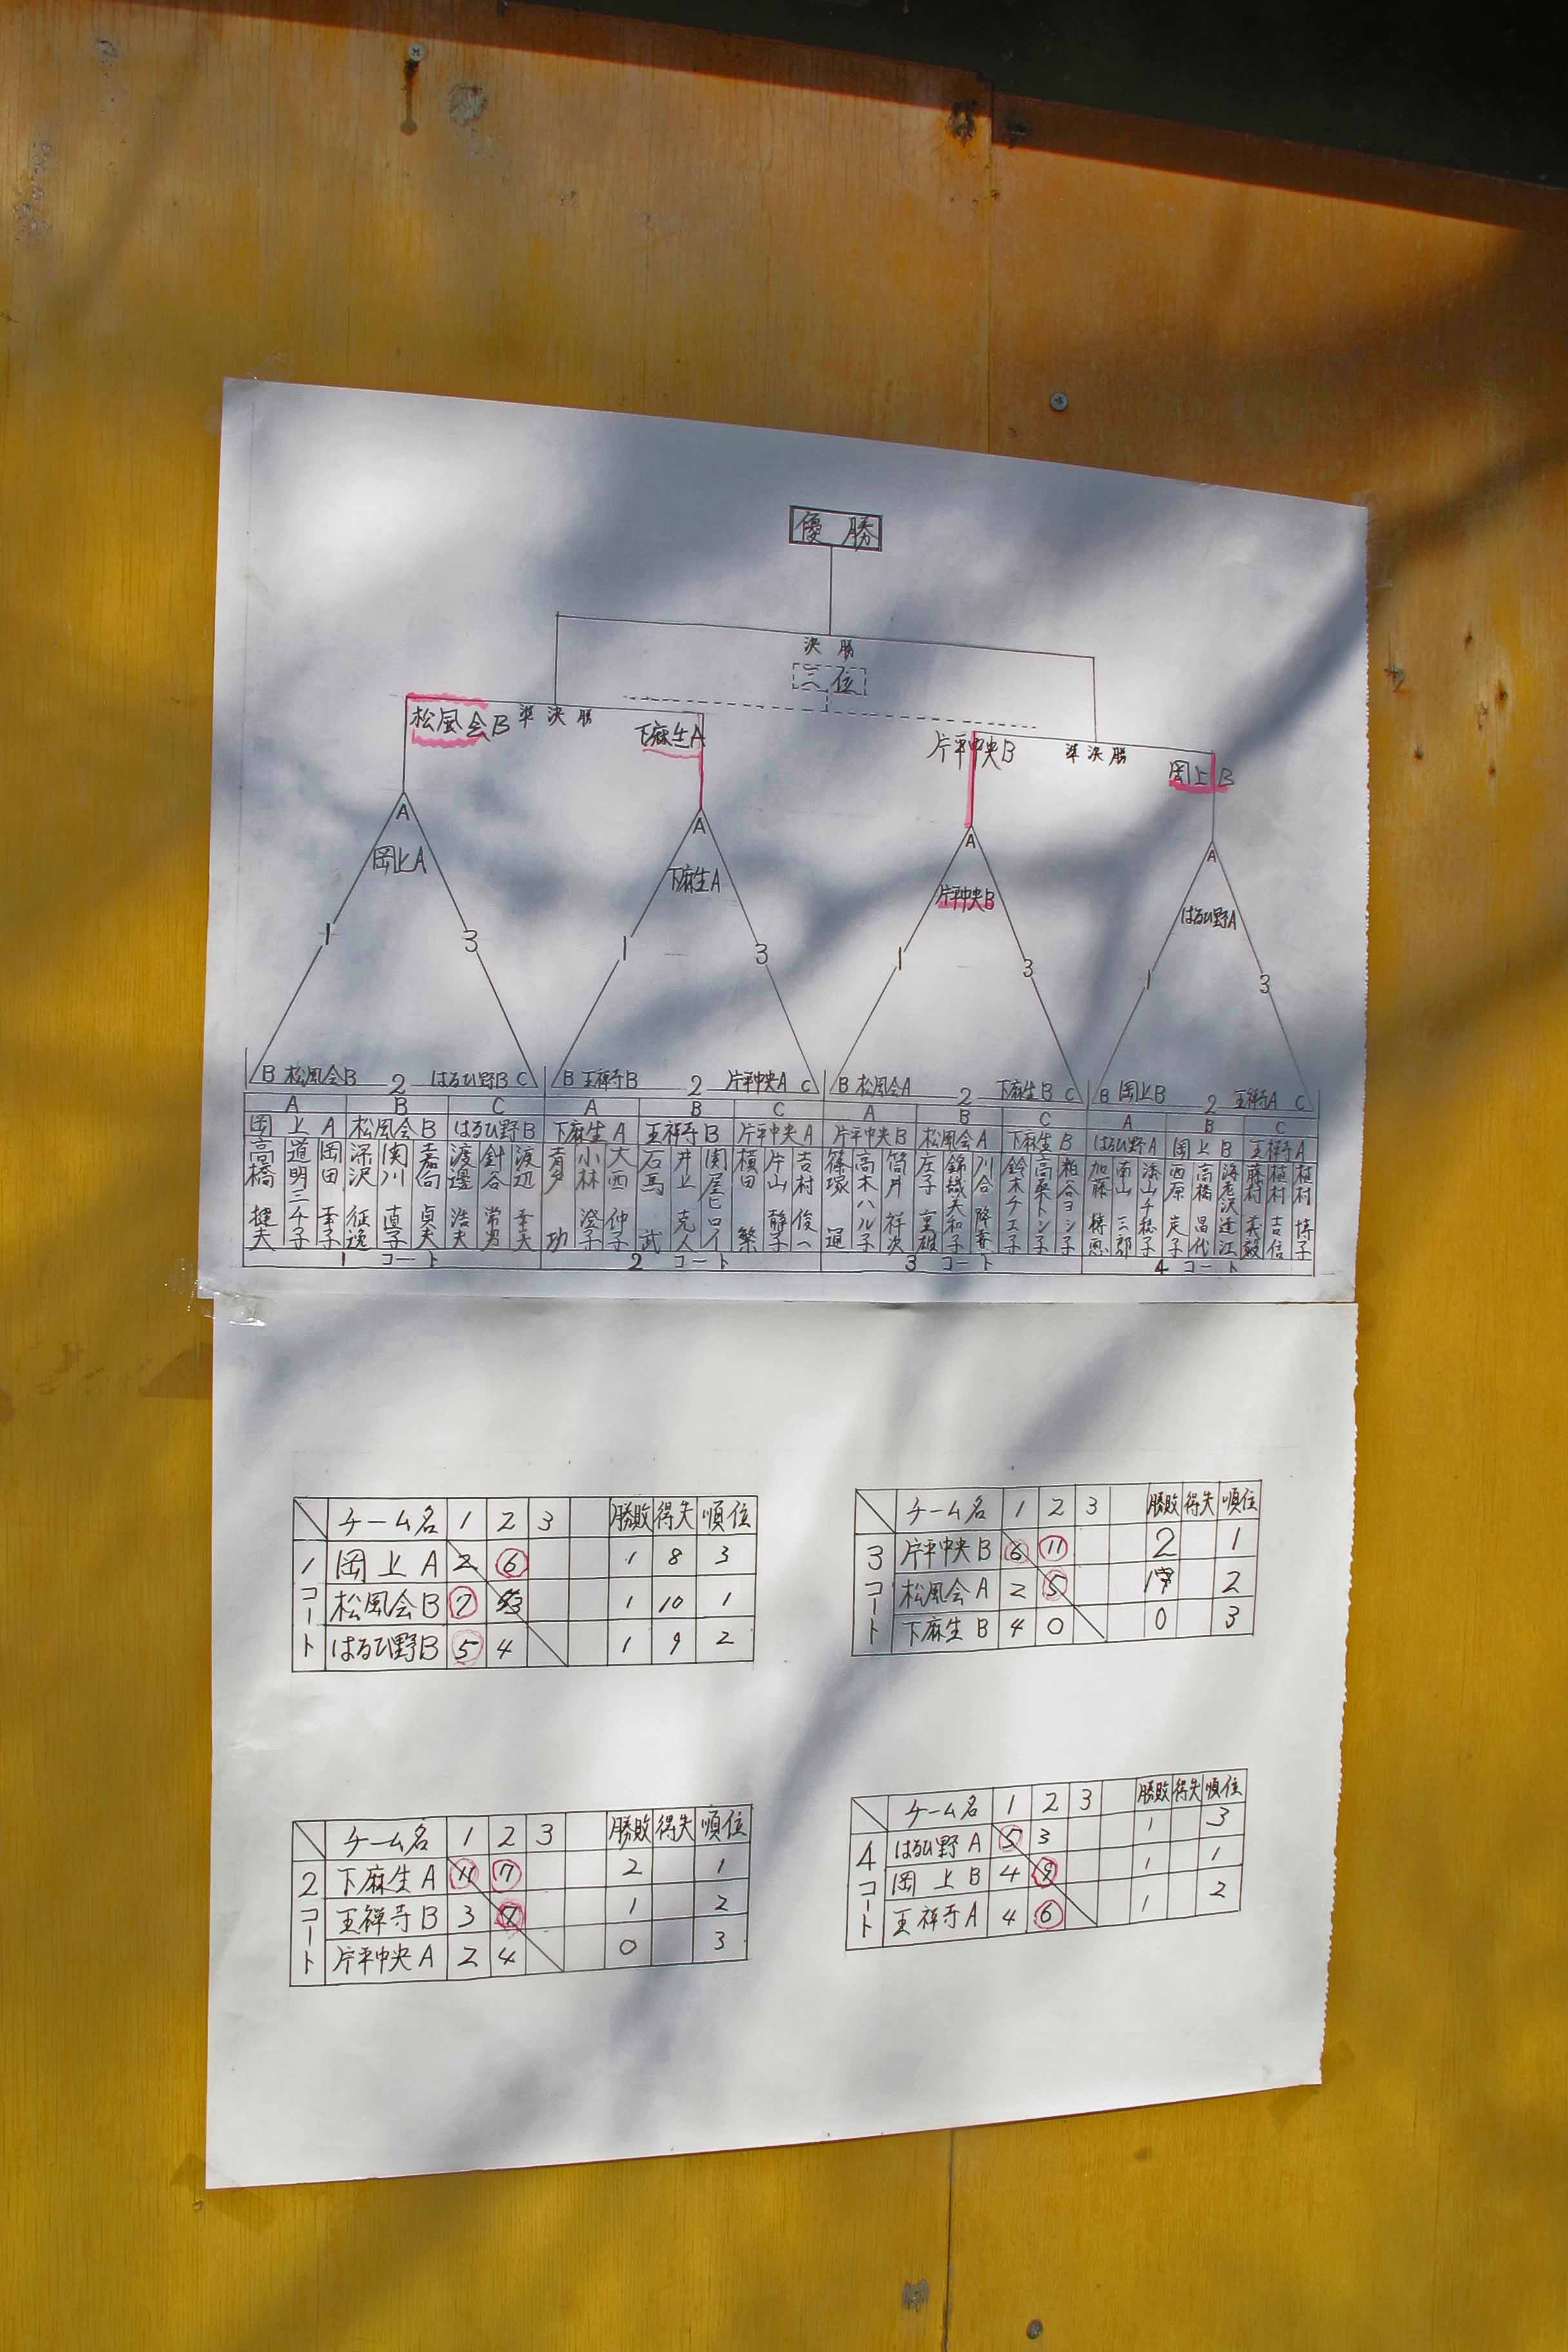 優勝
決勝
三位
松風会B 準決勝 下麻生A
片平中央B 準決勝 岡上B
A A A A
岡上A 下麻生A 片平中央B はるひ野A
1 3 1 3 1 3 1 3
B 松風会B 2 はるひ野B C B 王禅寺B 2 片平中央A C B 松風会A 2 下麻生B C B 岡上B 2 王禅寺A C
A B C A B C A B C A B C
岡上A 松風会B はるひ野B 下麻生A 王禅寺B 片平中央A 片平中央B 松風会A 下麻生B はるひ野A 岡上B 王禅寺A
高橋 健夫
道明 三千子
岡田 幸子
深沢 征逸
関川 直子
渡邊 浩夫
針谷 常男
渡辺 幸夫
小林 澄子
大西 仲子
石馬 武
井上 克人
関屋 ヒロイ
横田 繁
片山 静子
吉村 俊一
篠塚
高木 ハル子
筒井 祥次
庄子 重雄
錦織 美和子
川合
鈴木 チエ子
高桑 トシ子
粕谷 ヨシ子
加藤
南山 三郎
浜山 千穂子
西原
高橋 昌代
海老沢 達江
藤村 美毅
植村 吉信
植村 博子
1 コート 2 コート 3 コート 4 コート
チーム名 1 2 3 勝敗 得失 順位
1コート
岡上A 2 6 1 8 3
松風会B 7 3 1 10 1
はるひ野B 5 4 1 9 2
チーム名 1 2 3 勝敗 得失 順位
3コート
片平中央B 6 11 2 1
松風会A 2 5 1 2
下麻生B 4 0 0 3
チーム名 1 2 3 勝敗 得失 順位
2コート
下麻生A 11 7 2 1
王禅寺B 3 1 2
片平中央A 2 4 0 3
チーム名 1 2 3 勝敗 得失 順位
4コート
はるひ野A 5 3 1 3
岡上B 4 9 1 1
王禅寺A 4 6 1 2